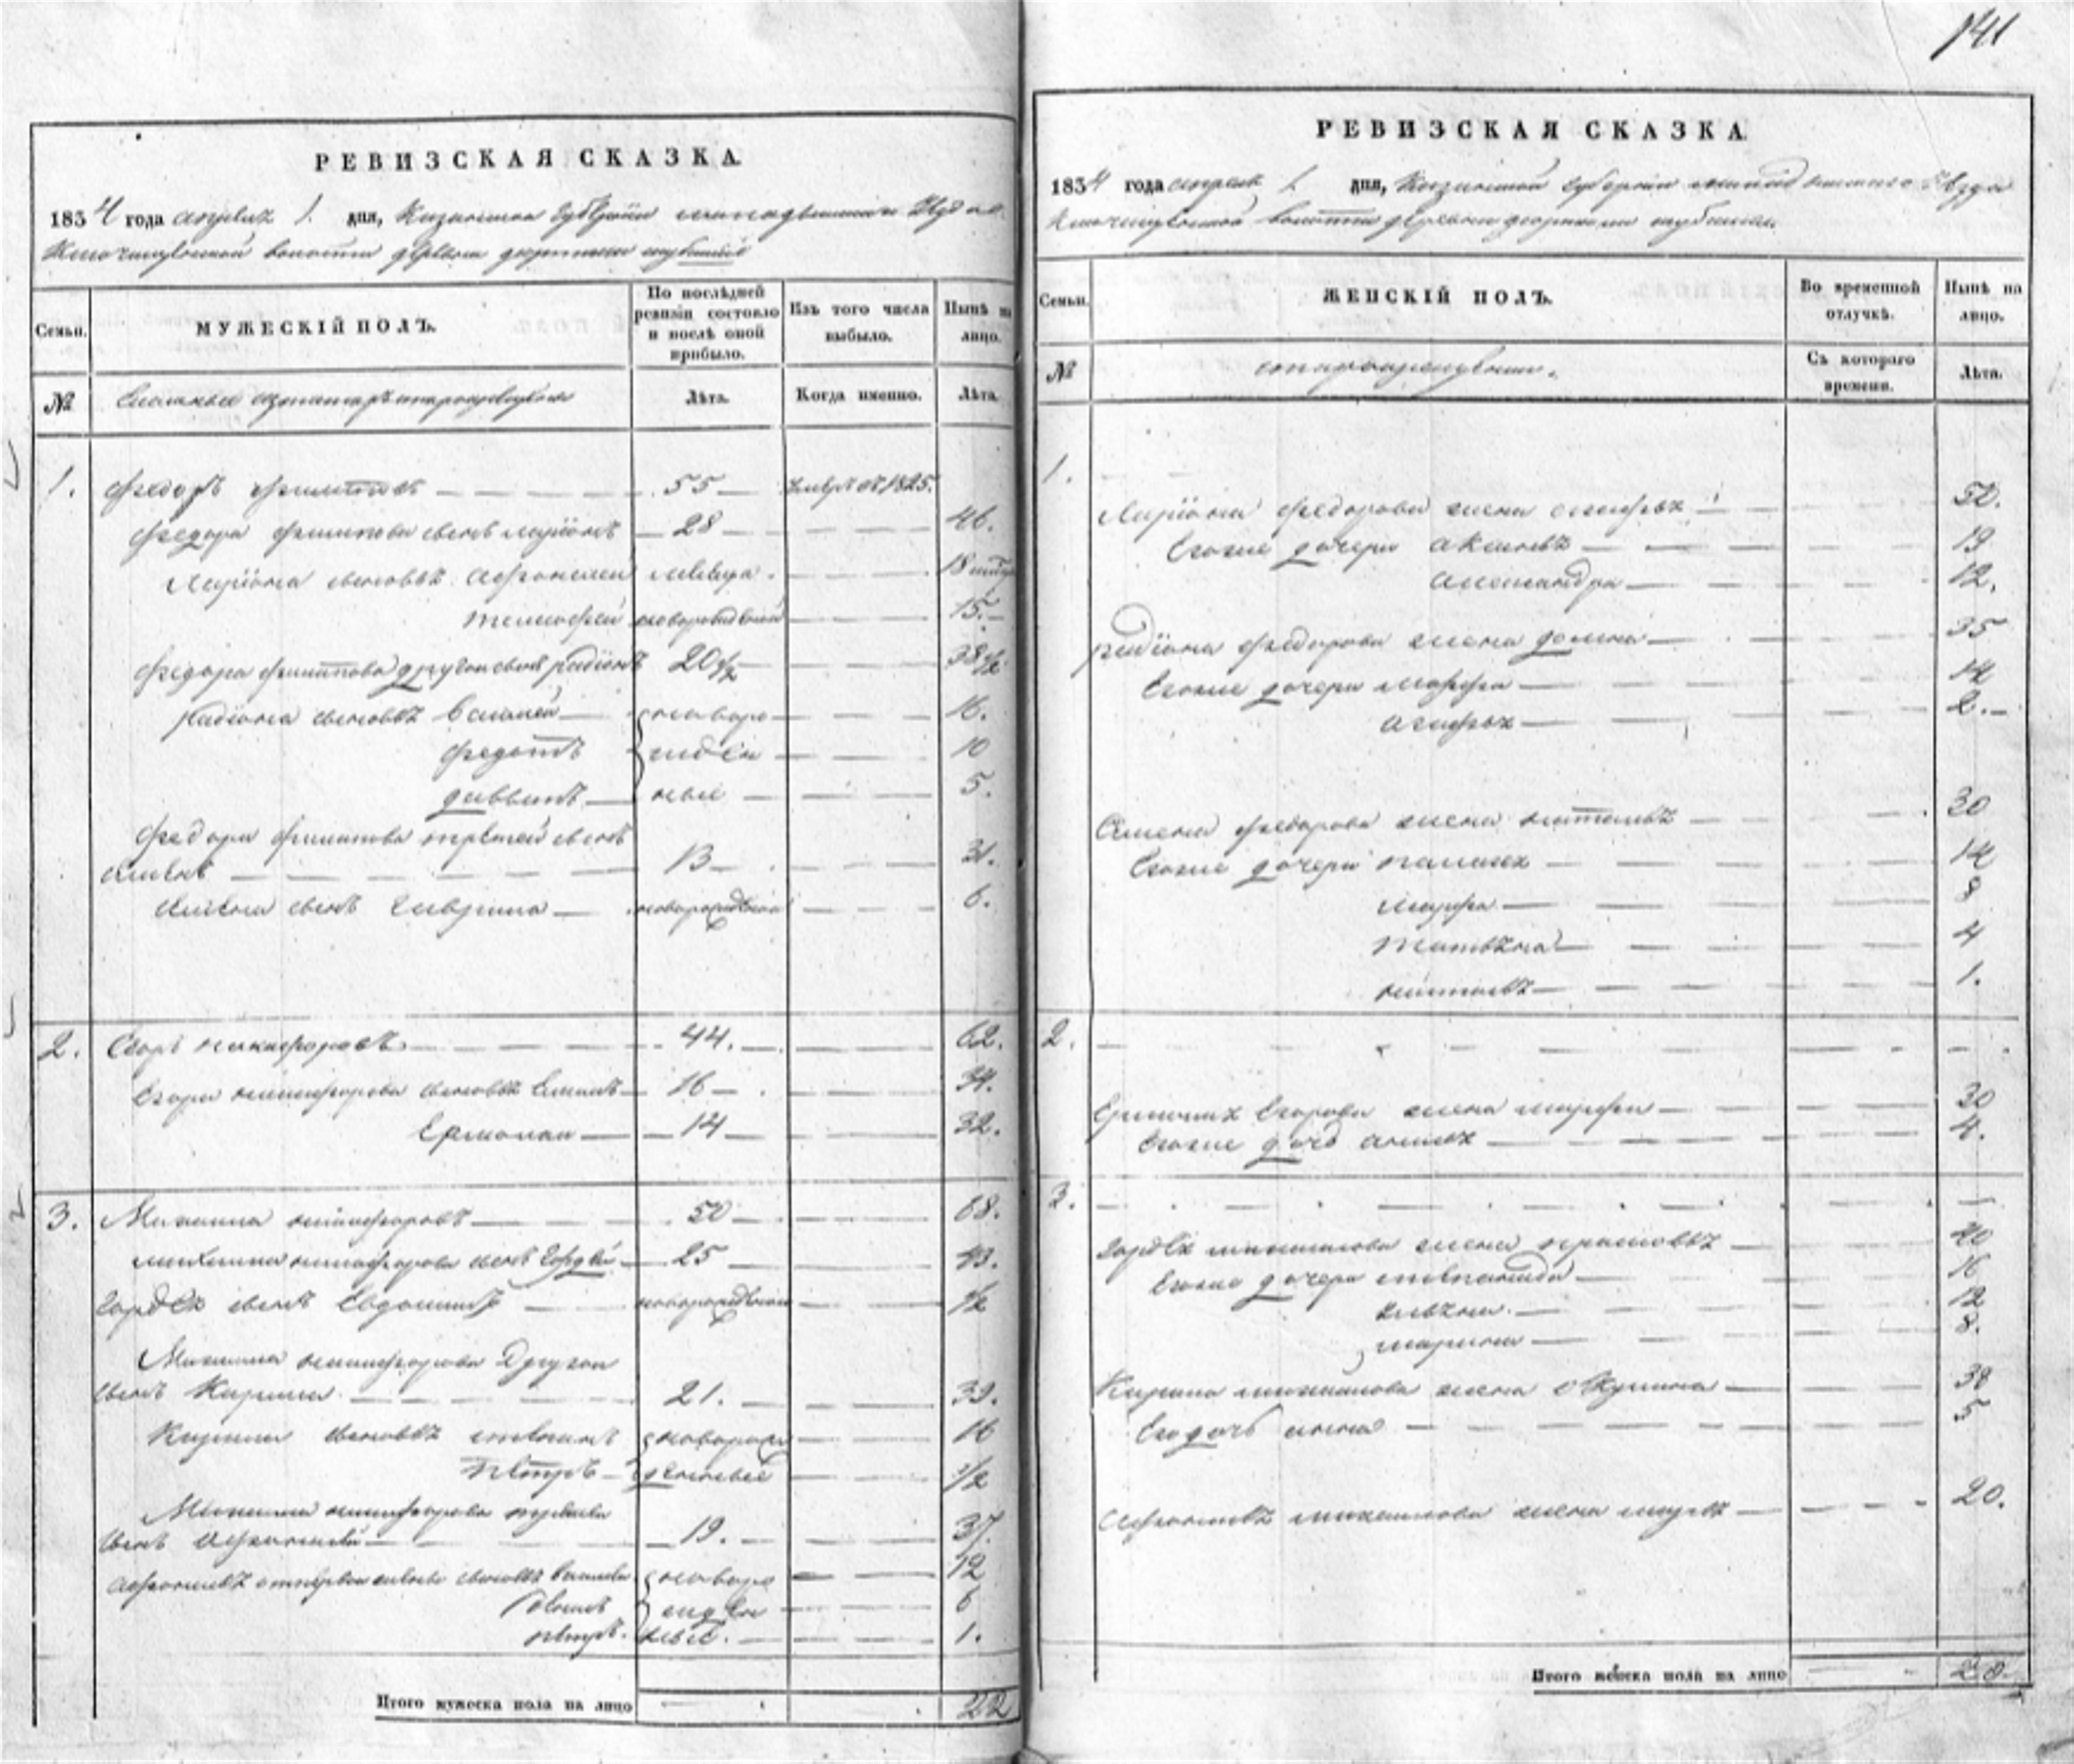 141
РЕВИЗСКАЯ СКАЗКА
1834 года апреля 1. дня, Казанской губернии
волости деревни
Семьи.
МУЖЕСКІЙ ПОЛЪ.
По послѣдней ревизіи состояло и послѣ оной прибыло.
Изъ того числа выбыло.
Нынѣ на лицо.
№
Лѣта.
Когда именно.
Лѣта.
1. Федоръ Филиповъ 55 умеръ въ 1825.
Федора Филипова сынъ Ларіонъ 28 46.
Ларіона сыновья 18
Тимофей новорожденной 15.
Федора Филипова другой сынъ Радіонъ 20 1/2 38 1/2
Радіона сыновья Василей новоро 16.
Федотъ жден 10
Давыдъ ные 5.
Федора Филипова третей сынъ
Семенъ 13 31.
Семена сынъ Гаврила новорожденной 6.
2. Егоръ Никифоровъ 44. 62.
Егора Никифорова сыновья 16 34.
Ермолаи 14 32.
3. Михаила Никифоровъ 50 68.
Михаила Никифорова сынъ Гордей 25 43.
Гордея сынъ Евдокимъ новорожденной 1/2
Михаила Никифорова другой
сынъ Кирила 21. 39.
Кирила сыновья Степанъ новорож 16
Петръ денные 1/2
Михаила Никифорова
сынъ Афонасей 19. 37.
сыновья новоро 12
жден 6
Петръ ные. 1.
Итого мужеска пола на лицо 22
РЕВИЗСКАЯ СКАЗКА
1834 года апреля 1. дня, Казанской губернии уезда
волости деревни
Семьи.
ЖЕНСКІЙ ПОЛЪ.
Во временной отлучкѣ.
Нынѣ на лицо.
№
Съ котораго времени.
Лѣта.
1.
Ларіона Федорова жена 50.
Егоже дочери Аксинья 19
Александра 12.
Радіона Федорова жена Домна 35
Егоже дочери Марфа 14
Агафья 2.
Семена Федорова жена Наталья 30
Егоже дочери 14
Марфа 8
Татьяна 4
Наталья 1.
2.
Ермолая Егорова жена Марфа 30
Егоже дочь 4.
3.
Гордея Михаилова жена Прасковья 40
Егоже дочери Степанида 16
12
Марина 8.
Кирила Михаилова жена Акулина 38
Его дочь Анна 5
Афонасья Михаилова жена Марья 20.
Итого женска пола на лицо 20.